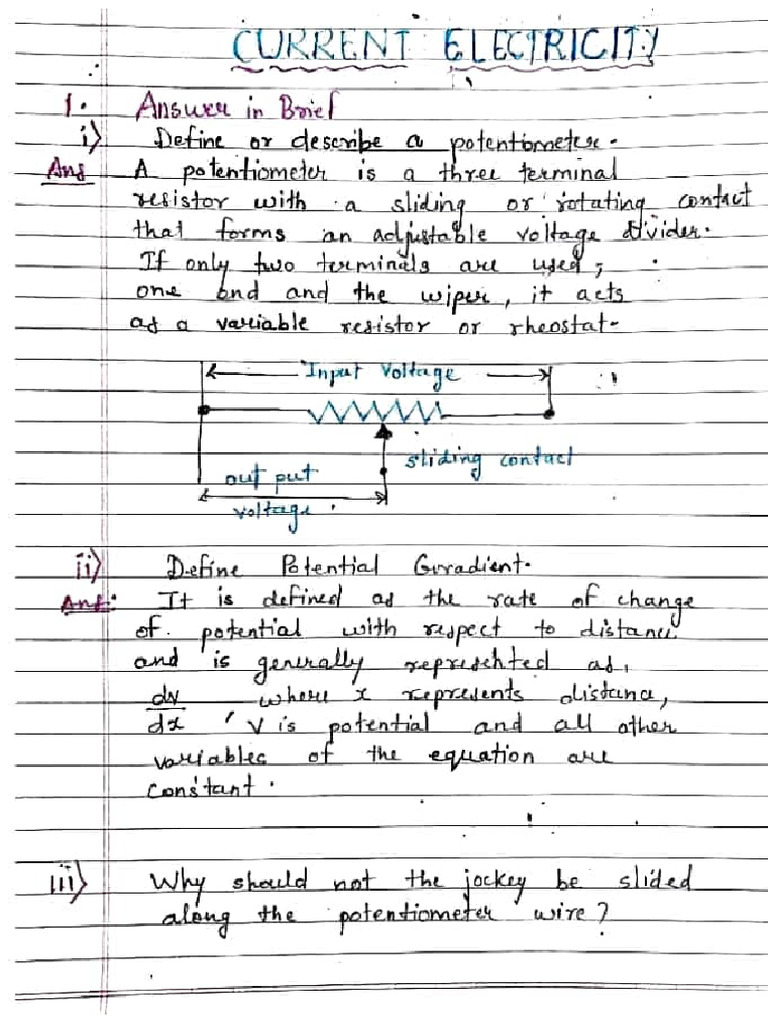 CURRENT ELECTRICITY
1. Answer in Brief
i) Define or describe a potentiometer.
Ans A potentiometer is a three terminal
resistor with a sliding or rotating contact
that forms an adjustable voltage divider.
If only two terminals are used,
one end and the wiper, it acts
as a variable resistor or rheostat-
Input Voltage
sliding contact
out put
voltage
ii) Define Potential Gradient.
Ans: It is defined as the rate of change
of potential with respect to distance
and is generally represented as,
dv where x represents distance,
dx V is potential and all other
variables of the equation are
constant.
iii) Why should not the jockey be slided
along the potentiometer wire?